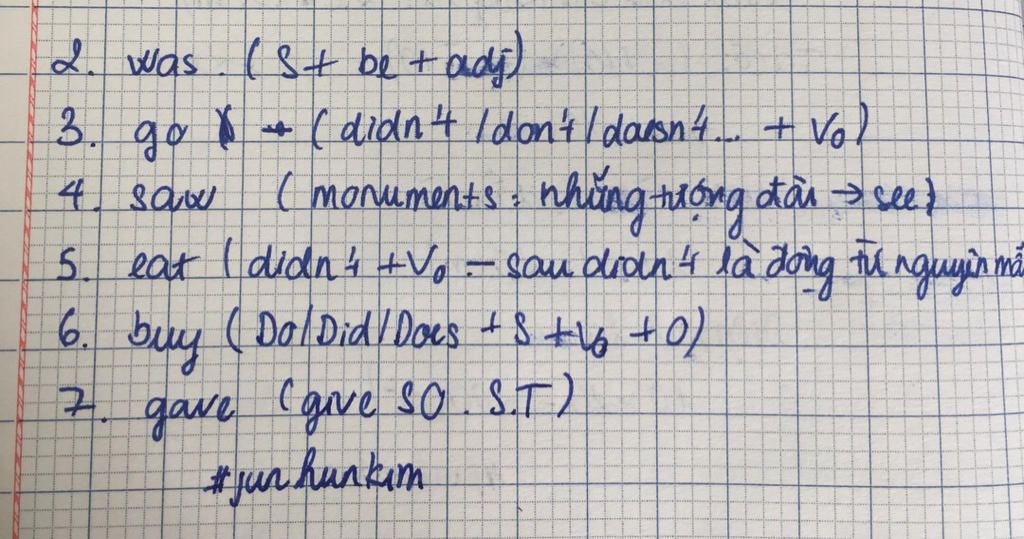 2. was. (S + be + adj)
3. go → (didn't /don't/doesn't... + V₀)
4. saw (monuments : những tượng đài → see)
5. eat (didn't + V₀ - sau didn't là động từ nguyên mẫ
6. buy (Do/Did/Does + S + V₀ + O)
7. gave (give SO. S.T)
#junhunkim